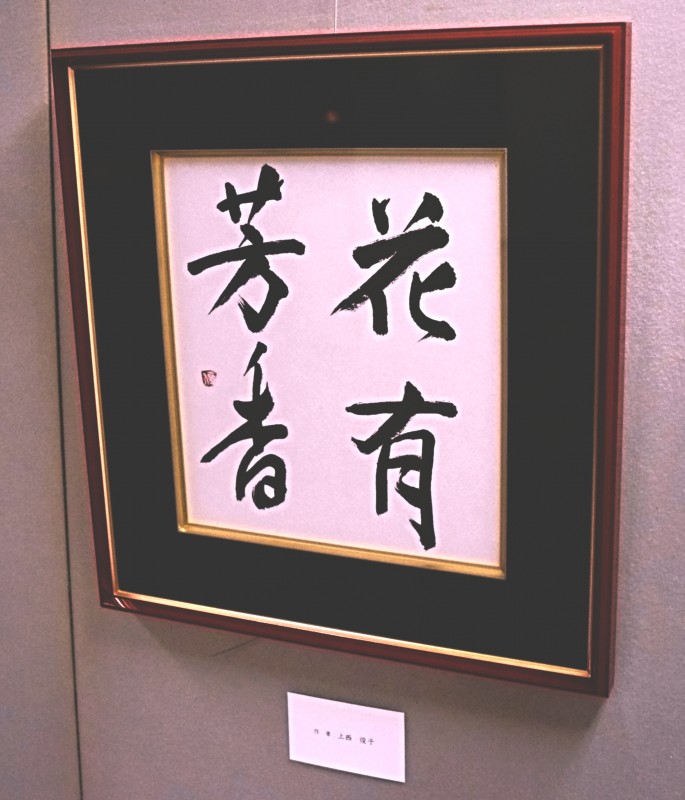 花有
芳香
作者 上西 俊子